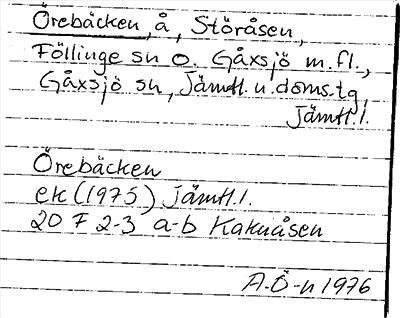 Örebäcken, å, Störåsen,
Föllinge sn o. Gåxsjö m.fl.,
Gåxsjö sn, Jämtl. n. doms. tg,
Jämtl.l.
Örebäcken
ek (1975) Jämtl.l.
20 F 2-3 a-b Kakuåsen
A.Ö-n 1976